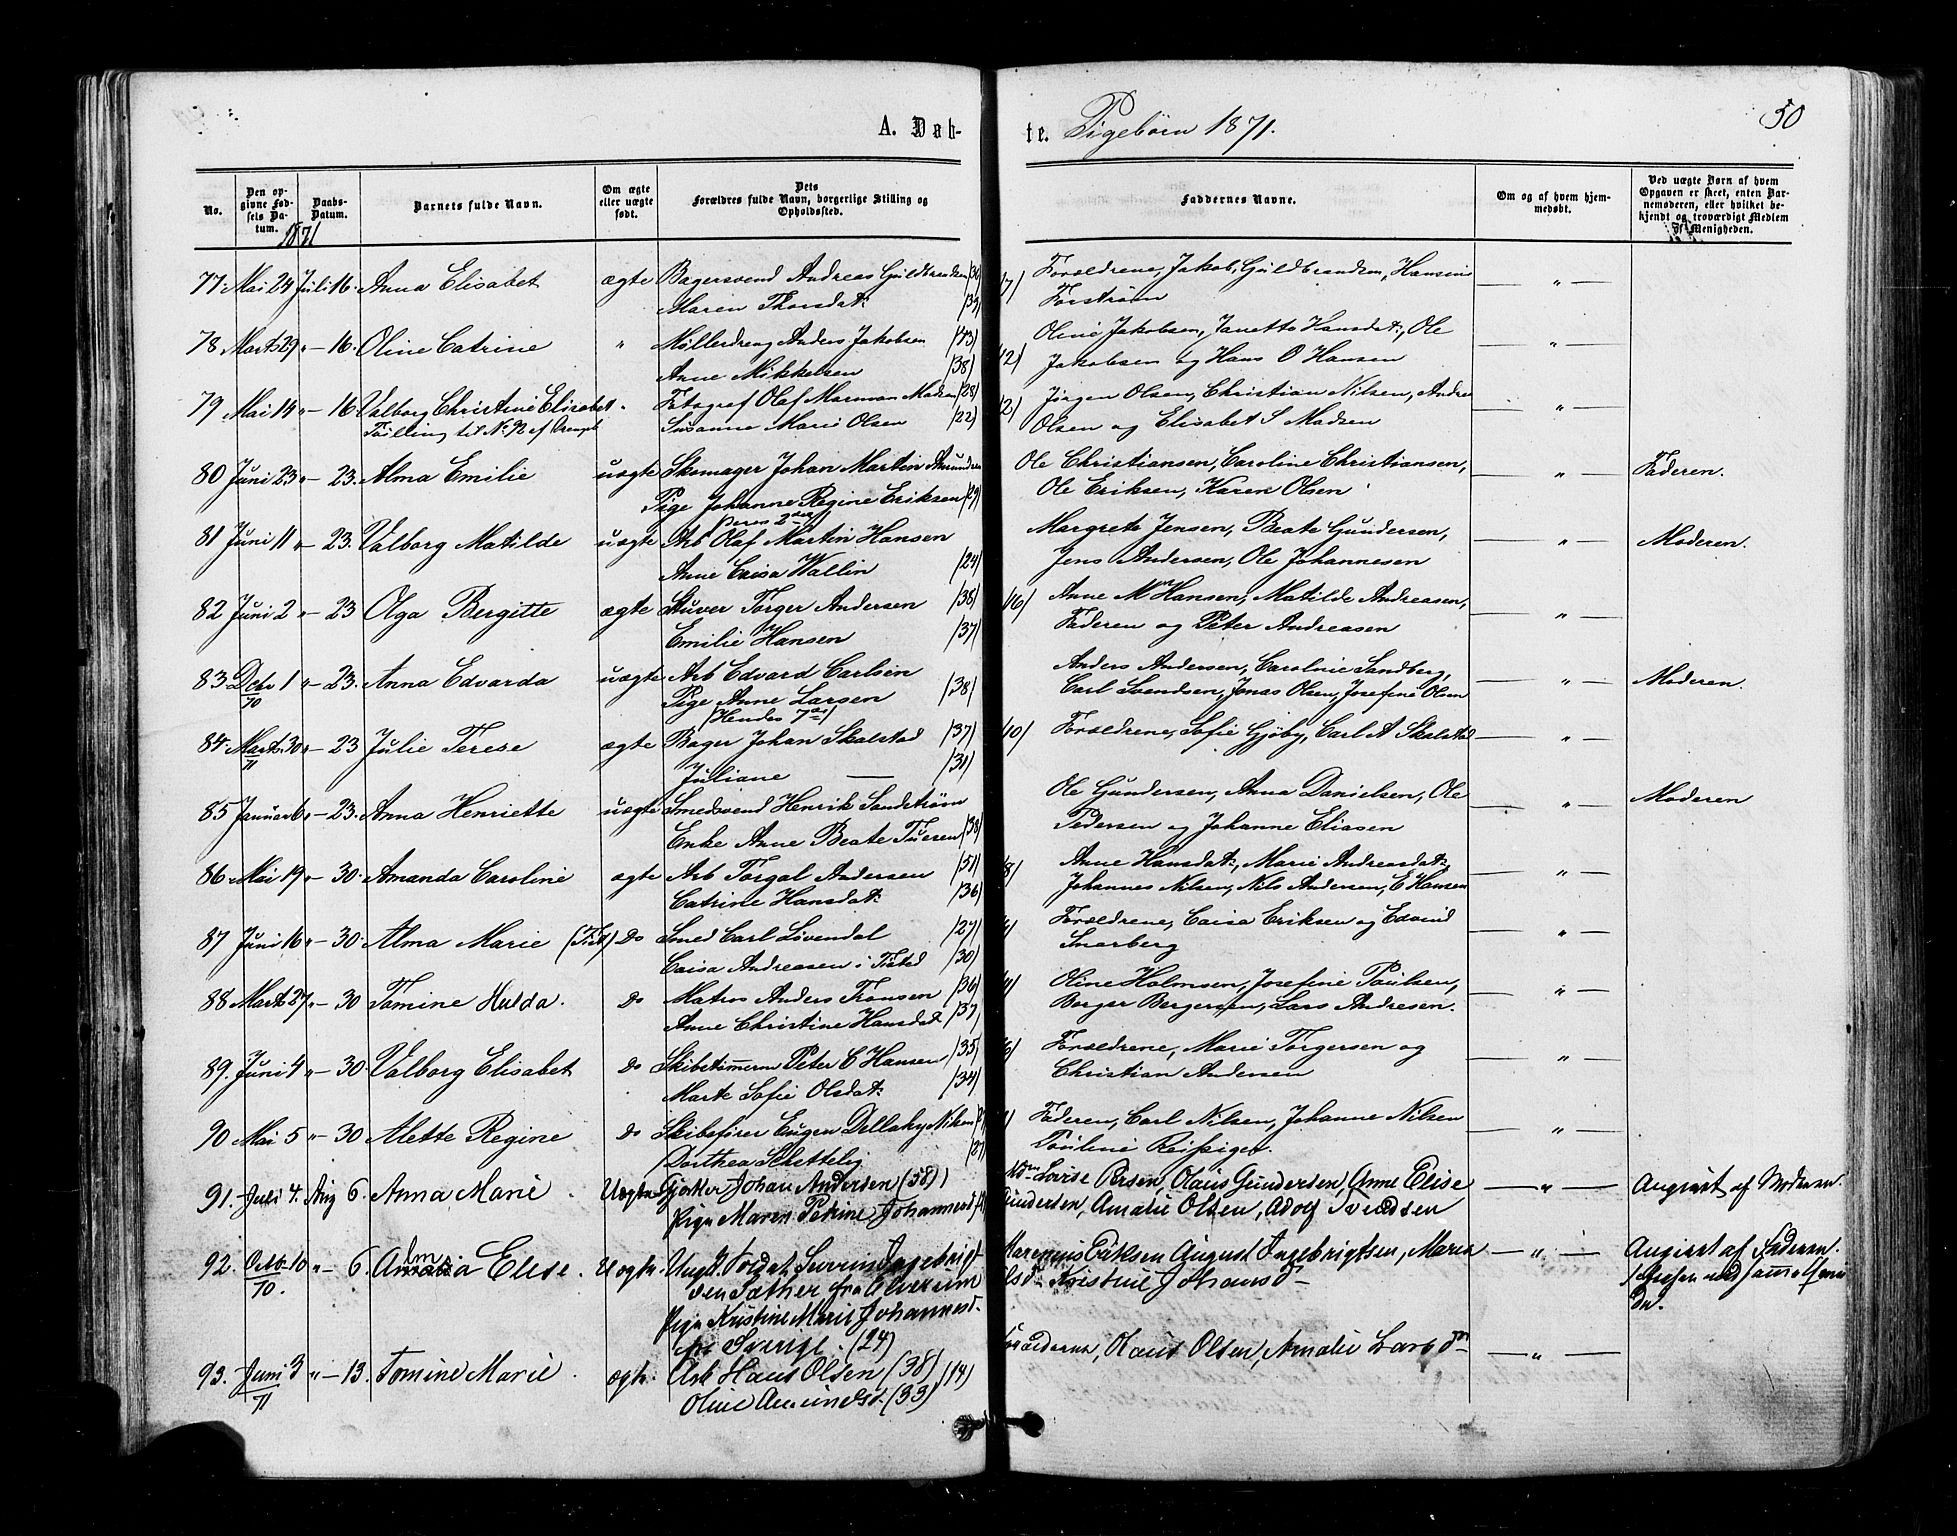 A. Døb-
te. Pigebørn 1871.
50
No.
Den op-
givne Fød-
sels Da-
tum.
Daabs-
Datum.
Barnets fulde Navn.
Om ægte
eller uægte
født.
Dets
Forældres fulde Navn, borgerlige Stilling og
Opholdssted.
Faddernes Navne.
Om og af hvem hjem-
medøbt.
Ved uægte Børn af hvem
Opgaven er skeet, enten Bar-
nemoderen, eller hvilket be-
kjendt og troværdigt Medlem
af Menigheden.
1871
77 Mai 24 Juli 16. Anna Elisabet ægte Bagersvend Andreas Guldbrandsen Forældrene, Jakob Guldbrandsen, Hansine — " —
Maren Thorsdat: Forstrøm
78 Marts 29 " — 16. Oline Catrine " Møllerdreng Anders Jakobsen /43/ Oline Jakobsen, Janette Hansdat:, Ole — " —
Anne Mikkelsen /38/ /12/ Jakobsen og Hans O Hansen
79 Mai 14 " — 16 Valborg Christine Elisabet " Fotograf Olaf Madsen /28/ /2/ Jørgen Olsen, Christian Nilsen, Andre — " —
Tvilling til No 92 af Drenge Susanne Marie Olsen /22/ Olsen og Elisabet S Madsen
80 Juni 23 " — 23. Alma Emilie uægte Skomager Johan Martin Amundsen Ole Christiansen, Caroline Christiansen, — " — Faderen.
Pige Johanne Regine Eriksen /29/ Ole Eriksen, Karen Olsen
/Deres 2det/
81 Juni 11 " — 23. Valborg Matilde uægte Arb Olaf Martin Hansen Margrete Jensen, Beate Gundersen, — " — Moderen.
Anne Caisa Wallin /24/ Jens Andersen, Ole Johannesen
82 Juni 2 " — 23 Olga Bergitte ægte Stuver Torger Andersen /38/ /16/ Anne M Hansen, Matilde Andreasen, — " —
Emilie Hansen /37/ Faderen og Peter Andreasen
83 Dcbr 1 " — 23. Anna Edvarda uægte Arb Edvard Carlsen Anders Andersen, Caroline Sandberg, — " — Moderen.
70 Pige Anne Larsen /38/ Carl Svendsen, Jonas Olsen, Josefine Olsen
/Hendes 7de/
84 Marts 30 " — 23 Julie Terese ægte Bager Johan Skalstad /37/ /10/ Forældrene, Sofie Gjøby, Carl A Skalstad — " —
71 Juliane — /31/
85 Januar 6 " — 23. Anna Henriette uægte Smedsvend Henrik Sandstrøm Ole Gundersen, Anna Danielsen, Ole — " — Moderen
Enke Anne Beate /38/ Pedersen og Johanne Eliasen
86 Mai 19 " — 30. Amanda Caroline ægte Arb Torgal Andersen /51/ /8/ Anne Hansdat:, Marie Andreasdat:, — " —
Catrine Hansdat: /36/ Johannes Nilsen, Nils Andersen, E Hansen
87 Juni 16 " — 30. Alma Marie (Tist) Do Smed Carl Løvendal /27/ Forældrene, Caisa Eriksen og Edvind — " —
Caisa Andreasen i Tisted /30/ Snarberg
88 Marts 27 " — 30 Tomine Hulda. Do Matros Anders Fransen /36/ Oline Holmsen, Josefine Poulsen, — " —
Anne Christine Hansdat /37/ Borger Bergersen, Lars Andresen.
89. Juni 4 " — 30. Valborg Elisabet Do Skibstimerm Peter C Hansen /35/ Forældrene, Marie Torgersen og — " —
Marte Sofie Olsdat: /34/ Christian Andersen
90 Mai 5 " — 30 Alette Regine Do Skibsfører Eugen Dellahy Nilsen Faderen, Carl Nilsen, Johanne Nilsen — " —
Dorthea Schettelig /27/ Pouline Reissiger.
91. Juli 4. Aug 6. Anna Marie. Uægte Johan Andersen (38) Lovise Persen, Olaus Gundersen, Anne Elise — " — Angivet af Moderen.
Pige Maren Petrine Johannesd Gundersen, Amalie Olsen, Adolf Svendsen
92. Octbr 10 " — 6. Alma Elise. Uægte. Ungk. Soldat Severin Ingebrigt- Marenius Eriksen August Ingebrigtsen, Maren — " — Angivet af Faderen.
70. sen Sæther fra Elverum Olsd- Kristine Johansd-
Pige Kristine Marie Johannesd.
fra Sverige. (24)
93. Juni 3 " — 13. Tomine Marie. ægte. Arb Hans Olsen (38) /14/ Forælderne, Olaus Olsen, Amalie Larsd- — " —
71 Oline Amundsd. (33)